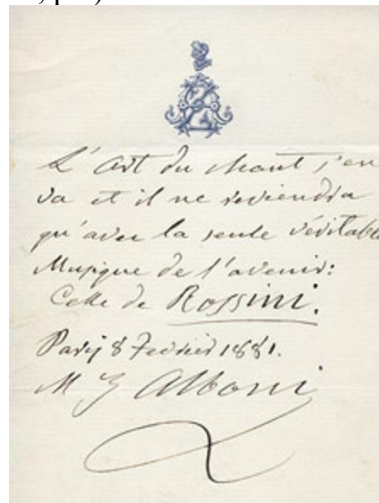 L'art du chant s'en
va et il ne reviendra
qu'avec la seule véritable
Musique de l'avenir:
Celle de Rossini.
Paris 8 Février 1881.
Alboni